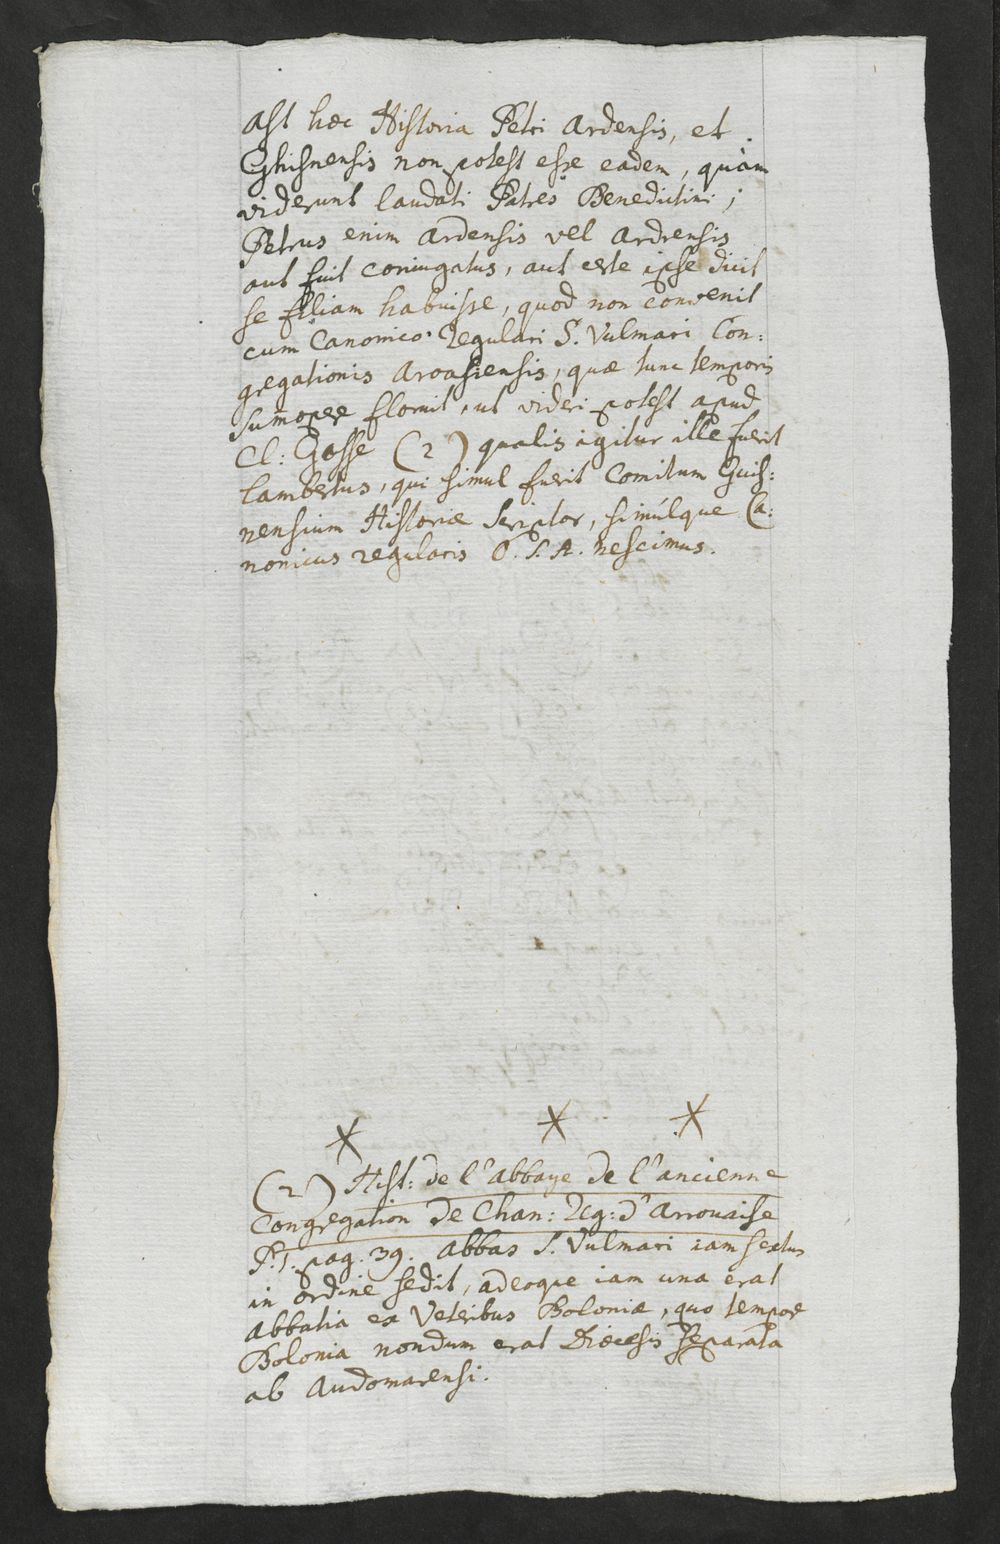 ast hæc Historia Petri Ardensis, et
Ghisnensis non potest esse eadem, quàm
viderunt laudati Patres Benedictini;
Petrus enim Ardensis vel Ardrensis
aut fuit coniugatus, aut certe ipse dicit
se filiam habuisse, quod non convenit
cum Canonico Regulari S. Vulmari Con:
gregationis Aroasiensis, quæ tunc temporis
sumopere floruit, ut videri potest apud
Cl: Gosse (2) qualis igitur ille fuerit
Lambertus, qui simul fuerit Comitum Guis:
nensium Historiæ Scriptor, simúlque Ca:
nonicus regularis O. S. A. nescimus.
(2) Hist: de l'abbaye de l'ancienne
Congregation de Chan: Reg: d'Arrouaise
P. 1. pag. 39. Abbas S. Vulmari iam sextus
in ordine sedit, adeoque iam una erat
Abbatia ex Veteribus Boloniæ, quo tempore
Bolonia nondum erat Diœcesis separata
ab Audomarensi.